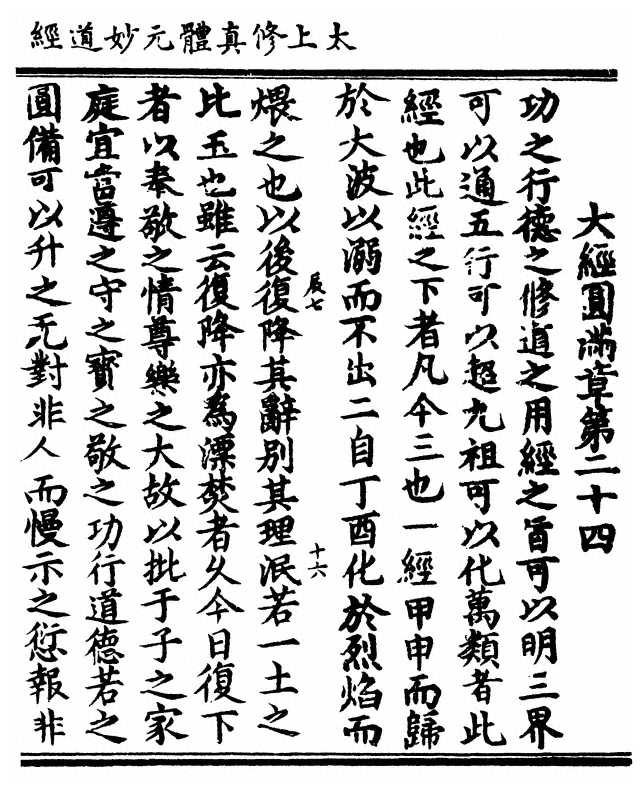 太上修真體元妙道經
大經圓滿章第二十四
功之行德之修道之用經之旨可以明三界
可以通五行可以超九祖可以化萬類者此
經也此經之下者凡今三也一經甲申而歸
於大波以溺而不出二自丁酉化於烈焰而
辰七
十六
煨之也以後復降其辭別其理泯若一土之
比玉也雖云復降亦為漂焚者久今日復下
者以奉敬之情尊樂之大故以批于子之家
庭宜當遵之守之寶之敬之功行道德若之
圓備可以升之无對非人而慢示之愆報非